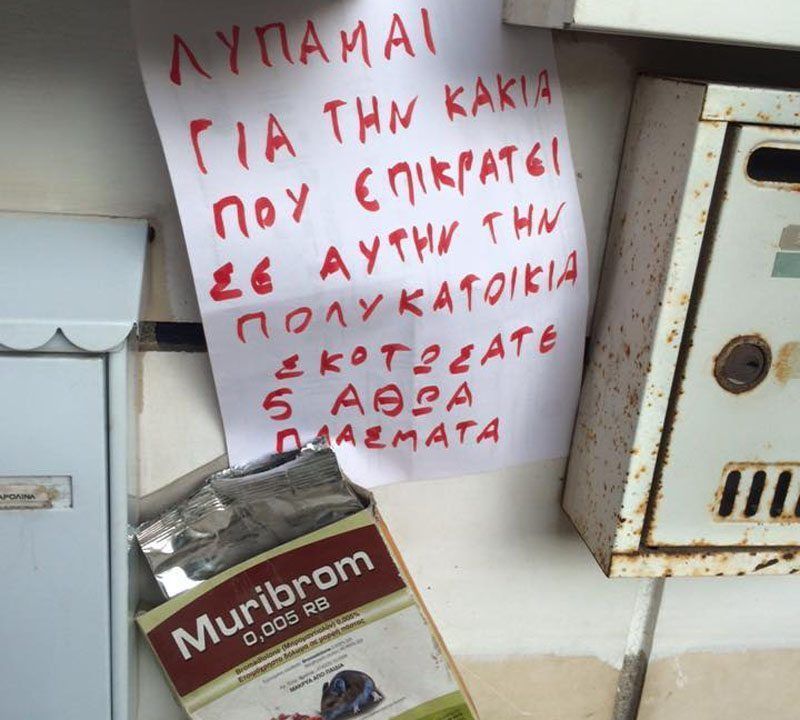 ΛΥΠΑΜΑΙ
ΓΙΑ ΤΗΝ ΚΑΚΙΑ
ΠΟΥ ΕΠΙΚΡΑΤΕΙ
ΣΕ ΑΥΤΗΝ ΤΗΝ
ΠΟΛΥΚΑΤΟΙΚΙΑ
ΣΚΟΤΩΣΑΤΕ
5 ΑΘΩΑ
ΠΛΑΣΜΑΤΑ
ΑΡΟΛΙΝΑ
Muribrom
0,005 RB
Bromadiolone (Μπρομαντιολόν) 0,005%
Ετοιμόχρηστο δόλωμα σε μορφή πάστας
ΜΑΚΡΥΑ ΑΠΟ ΠΑΙΔΙΑ